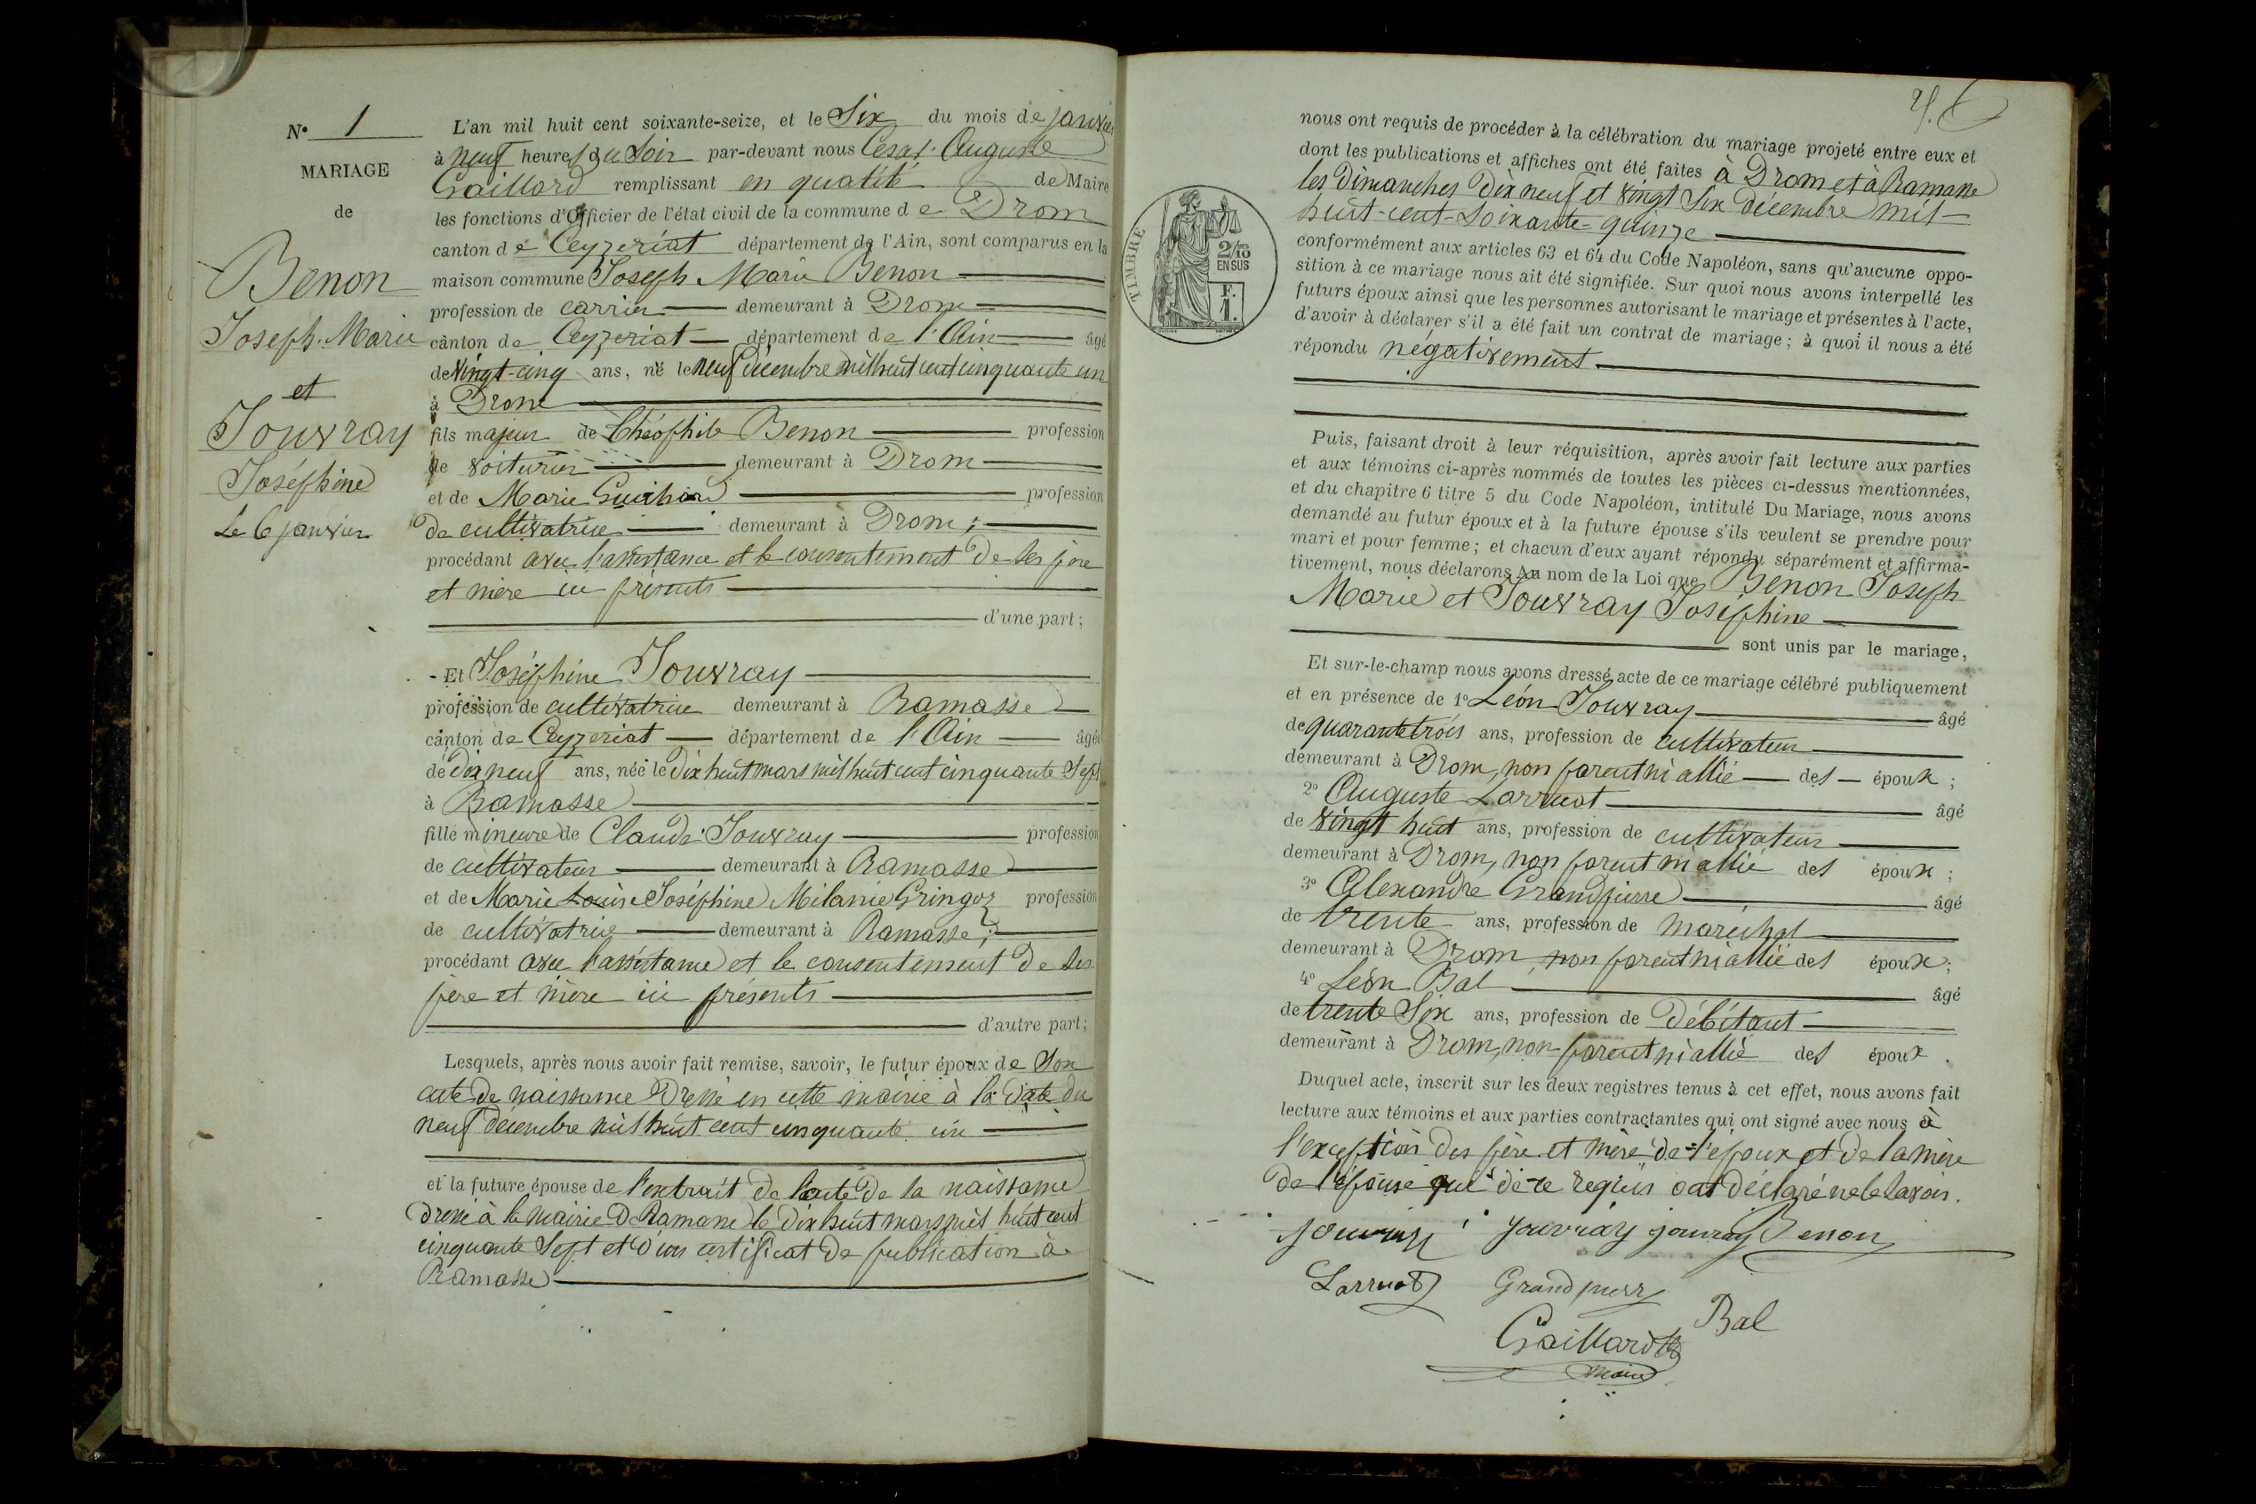 N° 1
MARIAGE
de
Benon
Joseph-Marie
et
Jouvray
Joséphine
Le 6 janvier
L'an mil huit cent soixante-seize, et le Six du mois de janvier
à neuf heures du Soir par-devant nous César Auguste
Gaillard remplissant en qualité de Maire
les fonctions d'Officier de l'état civil de la commune de Drom
canton de Ceyzeriat département de l'Ain, sont comparus en la
maison commune Joseph Marie Benon
profession de carrier demeurant à Drom
canton de Ceyzeriat département de l'Ain âgé
de Vingt-cinq ans, né le neuf décembre mil huit cent cinquante un
à Drom
fils majeur de Théophile Benon profession
de voiturier demeurant à Drom
et de Marie profession
de cultivatrice demeurant à Drom;
procédant avec l'assistance et le consentement de ses père
et mère ici présents
d'une part;
- Et Joséphine Jouvray
profession de cultivatrice demeurant à Ramasse
canton de Ceyzeriat département de l'Ain âgée
de dix neuf ans, née le dix huit mars mil huit cent cinquante Sept
à Ramasse
fille mineure de Claude Jouvray profession
de cultivateur demeurant à Ramasse
et de Marie Louise Joséphine Mélanie Gringoz profession
de cultivatrice demeurant à Ramasse;
procédant avec l'assistance et le consentement de ses
père et mère ici présents
d'autre part;
Lesquels, après nous avoir fait remise, savoir, le futur époux de Son
acte de naissance Dressé en cette mairie à la date du
neuf décembre mil huit cent cinquante un
et la future épouse de l'extrait de l'acte de sa naissance
dressé à la mairie de Ramasse le dix huit mars mil huit cent
cinquante Sept et d'un certificat de publication à
Ramasse
TIMBRE
2/10
EN SUS
F.
1.
nous ont requis de procéder à la célébration du mariage projeté entre eux et
dont les publications et affiches ont été faites à Drom et à Ramasse
les dimanches dix neuf et vingt Six décembre mil
huit-cent-soixante-quinze
conformément aux articles 63 et 64 du Code Napoléon, sans qu'aucune oppo-
sition à ce mariage nous ait été signifiée. Sur quoi nous avons interpellé les
futurs époux ainsi que les personnes autorisant le mariage et présentes à l'acte,
d'avoir à déclarer s'il a été fait un contrat de mariage; à quoi il nous a été
répondu négativement
Puis, faisant droit à leur réquisition, après avoir fait lecture aux parties
et aux témoins ci-après nommés de toutes les pièces ci-dessus mentionnées,
et du chapitre 6 titre 5 du Code Napoléon, intitulé Du Mariage, nous avons
demandé au futur époux et à la future épouse s'ils veulent se prendre pour
mari et pour femme; et chacun d'eux ayant répondu séparément et affirma-
tivement, nous déclarons Au nom de la Loi que Benon Joseph
Marie et Jouvray Joséphine
sont unis par le mariage,
Et sur-le-champ nous avons dressé acte de ce mariage célébré publiquement
et en présence de 1° Léon Jouvray âgé
de quarante trois ans, profession de cultivateur
demeurant à Drom, non parent ni allié des époux;
2° Auguste Larruat âgé
de vingt huit ans, profession de cultivateur
demeurant à Drom, non parent ni allié des époux;
3° Alexandre Grandpierre âgé
de trente ans, profession de maréchal
demeurant à Drom non parent ni allié des époux;
4° Léon Bal âgé
de trente Six ans, profession de débitant
demeurant à Drom, non parent ni allié des époux.
Duquel acte, inscrit sur les deux registres tenus à cet effet, nous avons fait
lecture aux témoins et aux parties contractantes qui ont signé avec nous à
l'exception des père et mère de l'époux et de la mère
de l'épouse qui de ce requis ont déclaré ne le savoir.
jouvray jouvray jouvray Benon
Larruat Grandpierre
Bal
Gaillard
maire